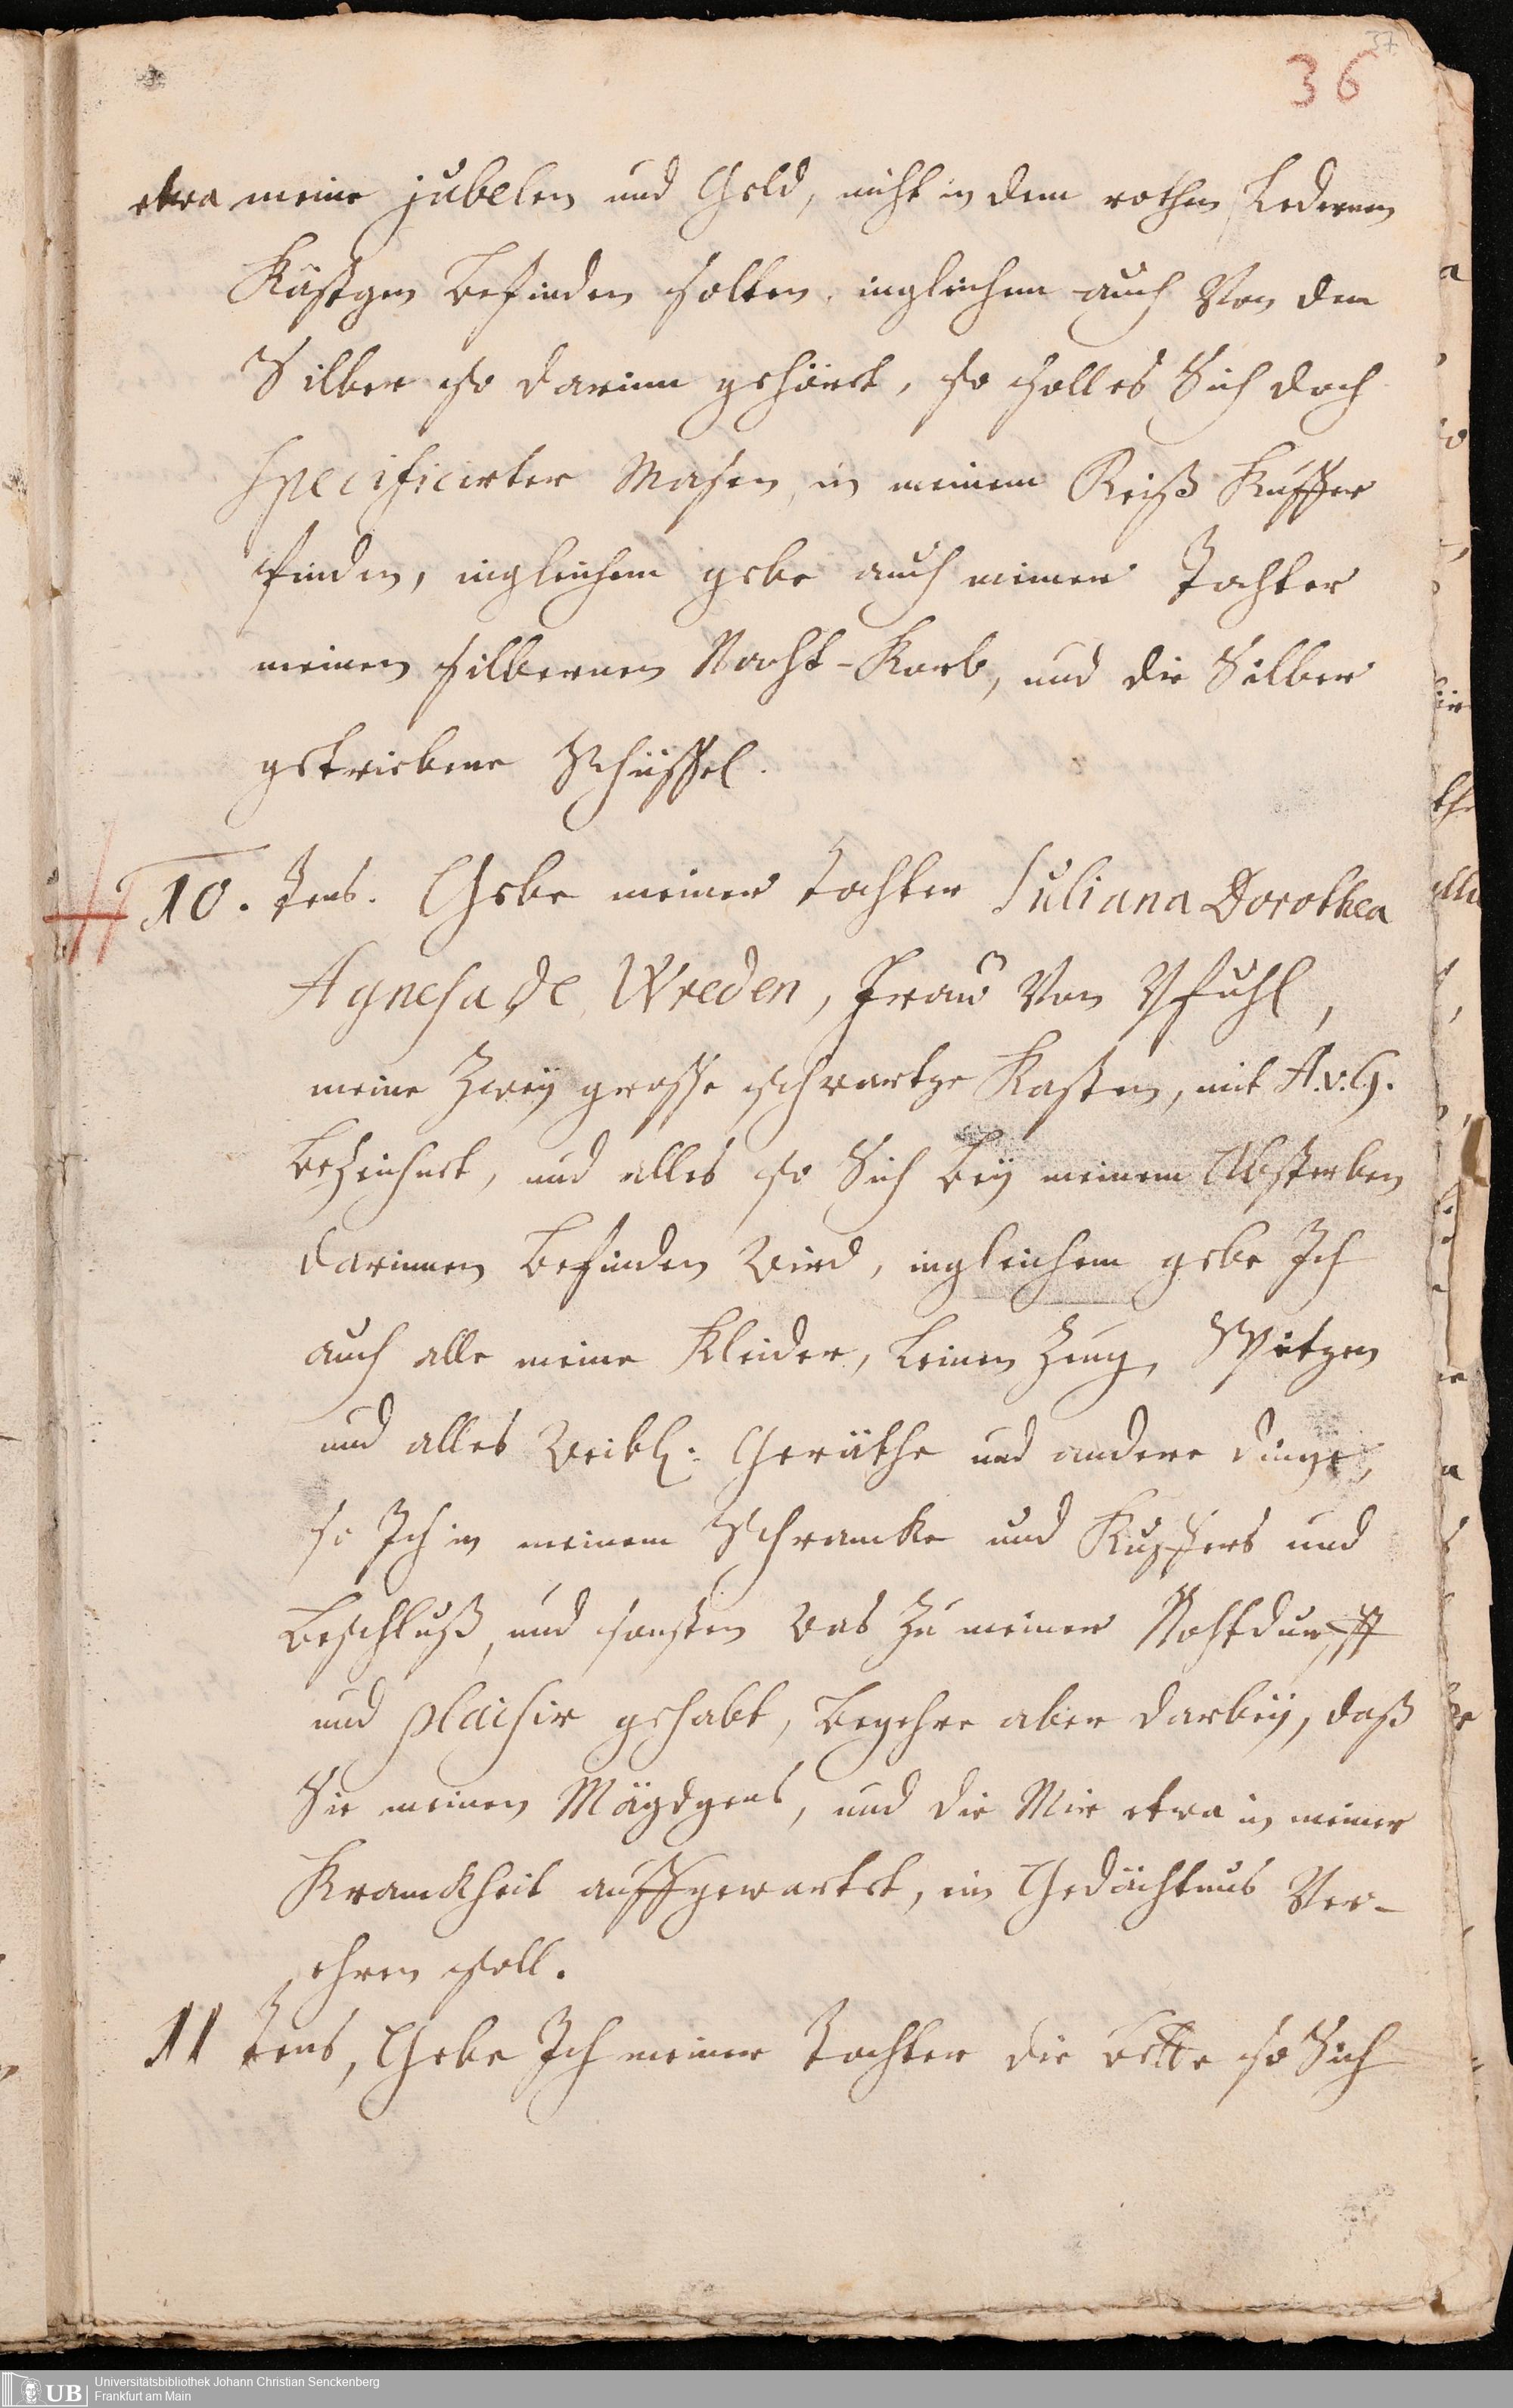 37
36
etwa meine jubelen und Geld, nicht in dem rothen Ledernen
Kästgen befinden solten, ingleichem auch Von dem
Silber so darinn gehöret, so soll es Sich doch
specificirter Masen, in meinem Reiß Kuffer
finden, ingleichem gebe auch meiner Tochter
meinen silbernen Nacht-Korb, und die Silber
getriebene Schüssel.
10. tens. Gebe meiner Tochter Juliana Dorothea
Agnesa de Wreden, Frau Von Pfuhl,
meine Zwey grosse schwartze Kasten, mit A.v.G.
bezeichnet, und alles so Sich bey meinem Absterben
darinnen befinden wird, ingleichem gebe Ich
auch alle meine Kleider, Leinen Zeug, Spitzen
und alles Weibl: Geräthe und andere dinge,
so Ich in meinem Schrancke und Kuffers und
beschluß, und sonsten was zu meiner Nohtdurfft
und plaisir gehabt, begehre aber darbey, daß
Sie meinen Mägdgens, und die Mir etwa in meiner
Kranckheit auffgewartet, ein Gedächtnus Ver-
ehren soll.
11 tens, Gebe Ich meiner Tochter die bette so Sich
UB
Universitätsbibliothek Johann Christian Senckenberg
Frankfurt am Main